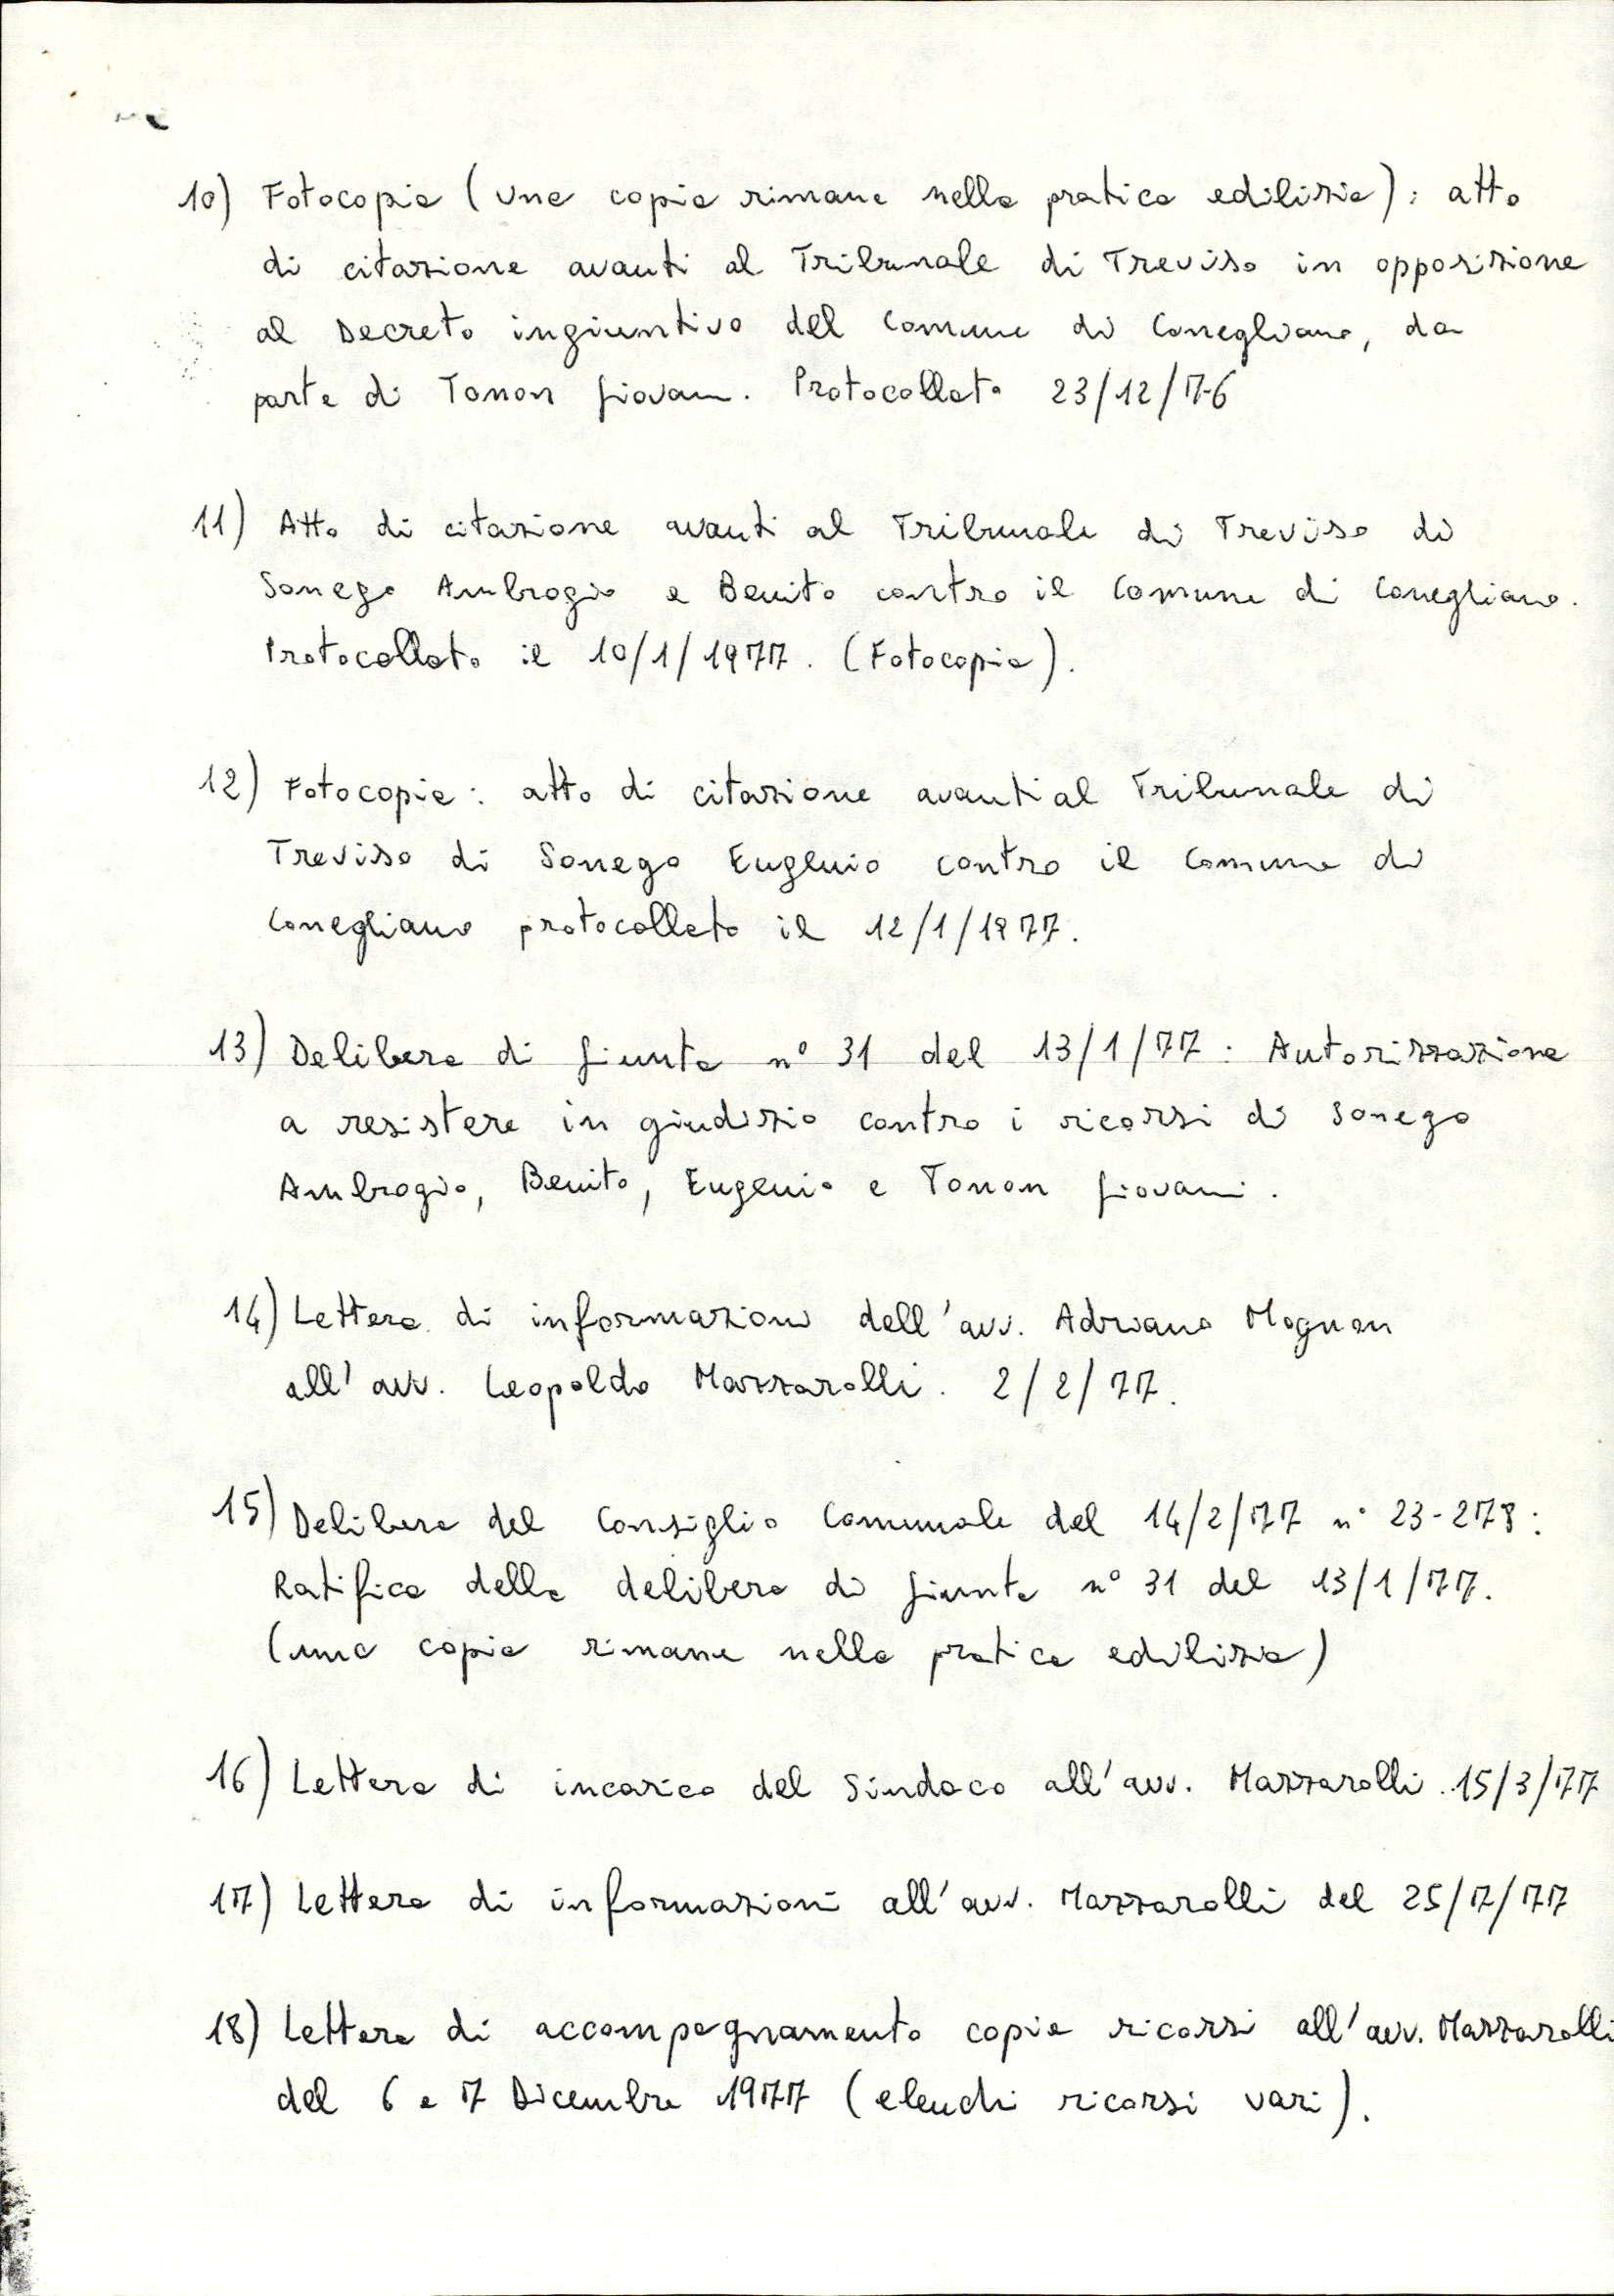 10) Fotocopia (una copia rimane nella pratica edilizia): atto
di citazione avanti al Tribunale di Treviso in opposizione
al Decreto ingiuntivo del Comune di Conegliano, da
parte di Tonon Giovanni. Protocollato 23/12/76
11) Atto di citazione avanti al Tribunale di Treviso di
Sonego Ambrogio e Benito contro il Comune di Conegliano.
Protocollato il 10/1/1977. (Fotocopia).
12) Fotocopia: atto di citazione avanti al Tribunale di
Treviso di Sonego Eugenio contro il Comune di
Conegliano protocollato il 12/1/1977.
13) Delibera di Giunta n° 31 del 13/1/77: Autorizzazione
a resistere in giudizio contro i ricorsi di Sonego
Ambrogio, Benito, Eugenio e Tonon Giovanni.
14) Lettera di informazioni dell'avv. Adriano Mognon
all'avv. Leopoldo Mazzarolli. 2/2/77.
15) Delibera del Consiglio Comunale del 14/2/77 n° 23-278:
Ratifica della delibera di Giunta n° 31 del 13/1/77.
(una copia rimane nella pratica edilizia)
16) Lettera di incarico del Sindaco all'avv. Mazzarolli. 15/3/77
17) Lettera di informazioni all'avv. Mazzarolli del 25/7/77
18) Lettera di accompagnamento copia ricorsi all'avv. Mazzarolli
del 6 e 7 Dicembre 1977 (elenchi ricorsi vari).